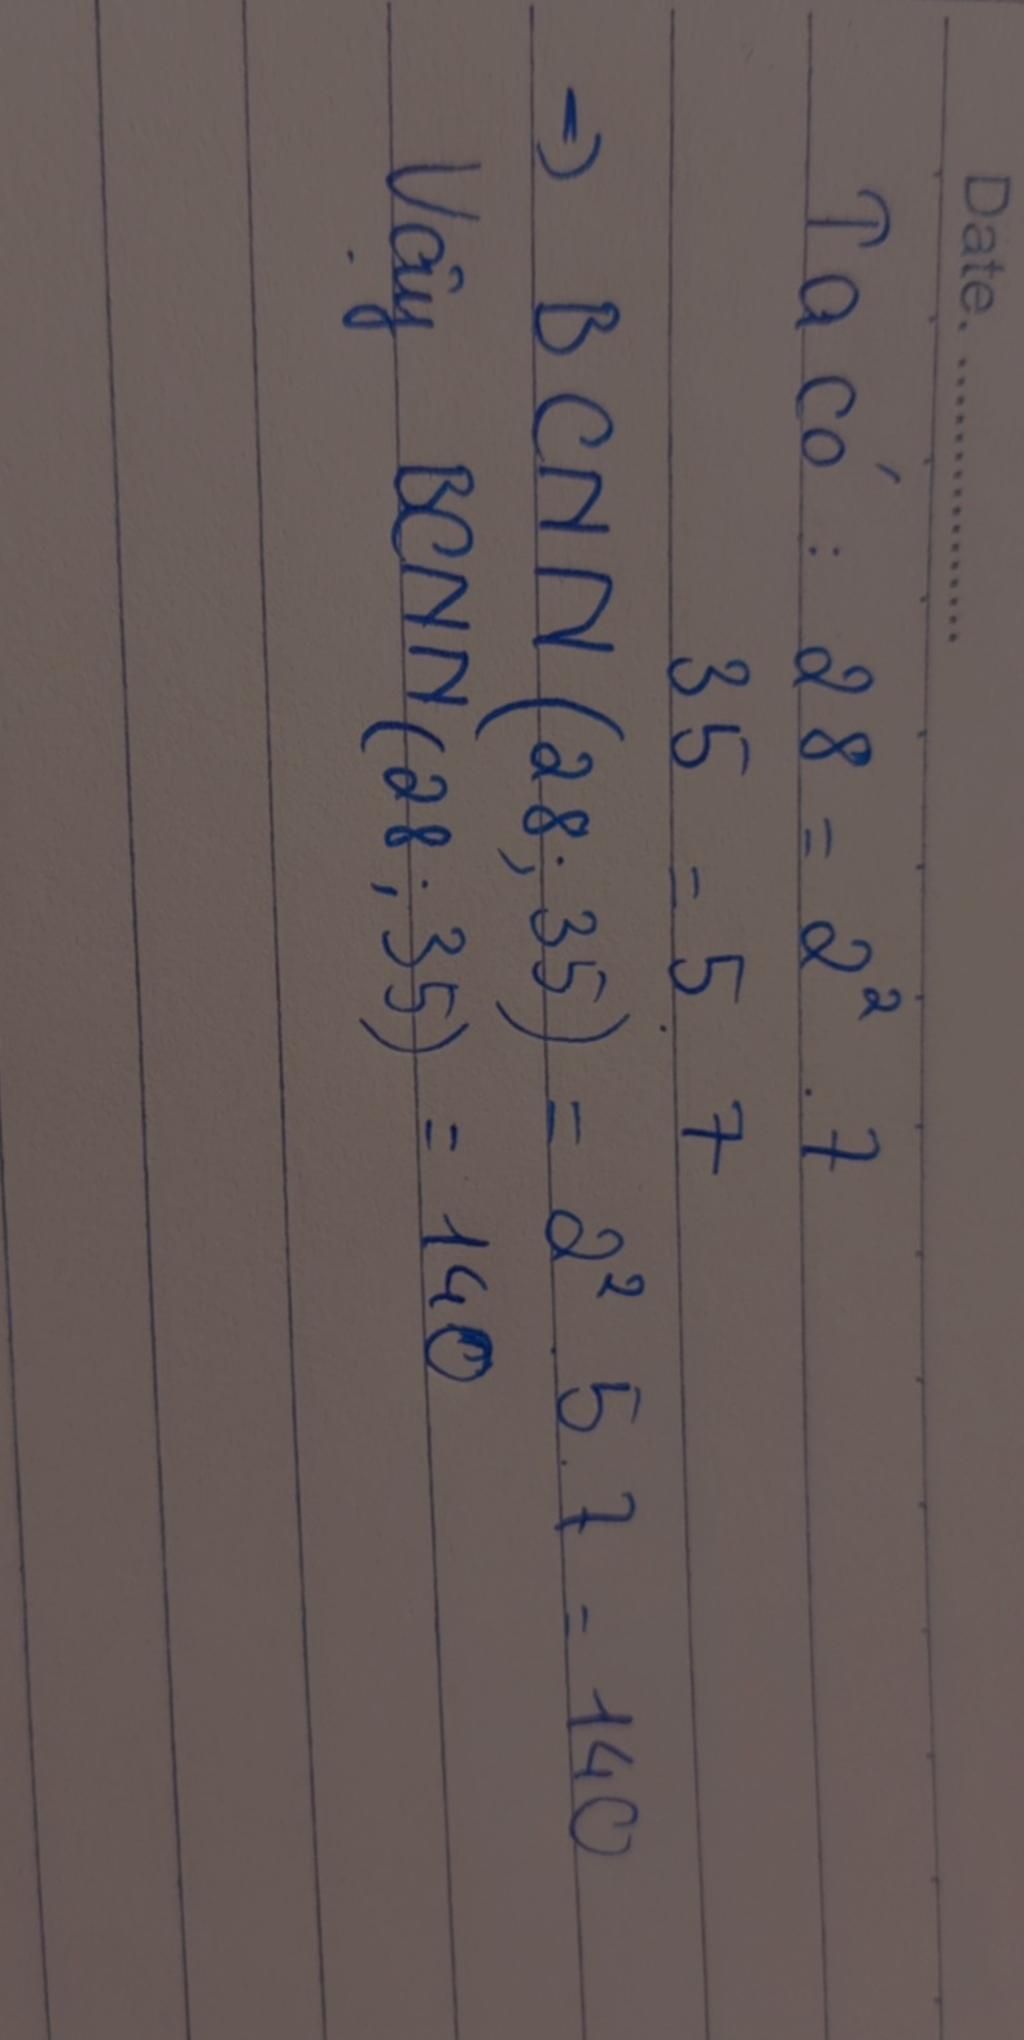 Date. ....................
Ta có: 28 = 2² . 7
35 = 5 . 7
=) BCNN (28; 35) = 2² . 5 . 7 = 140
Vậy BCNN (28; 35) = 140